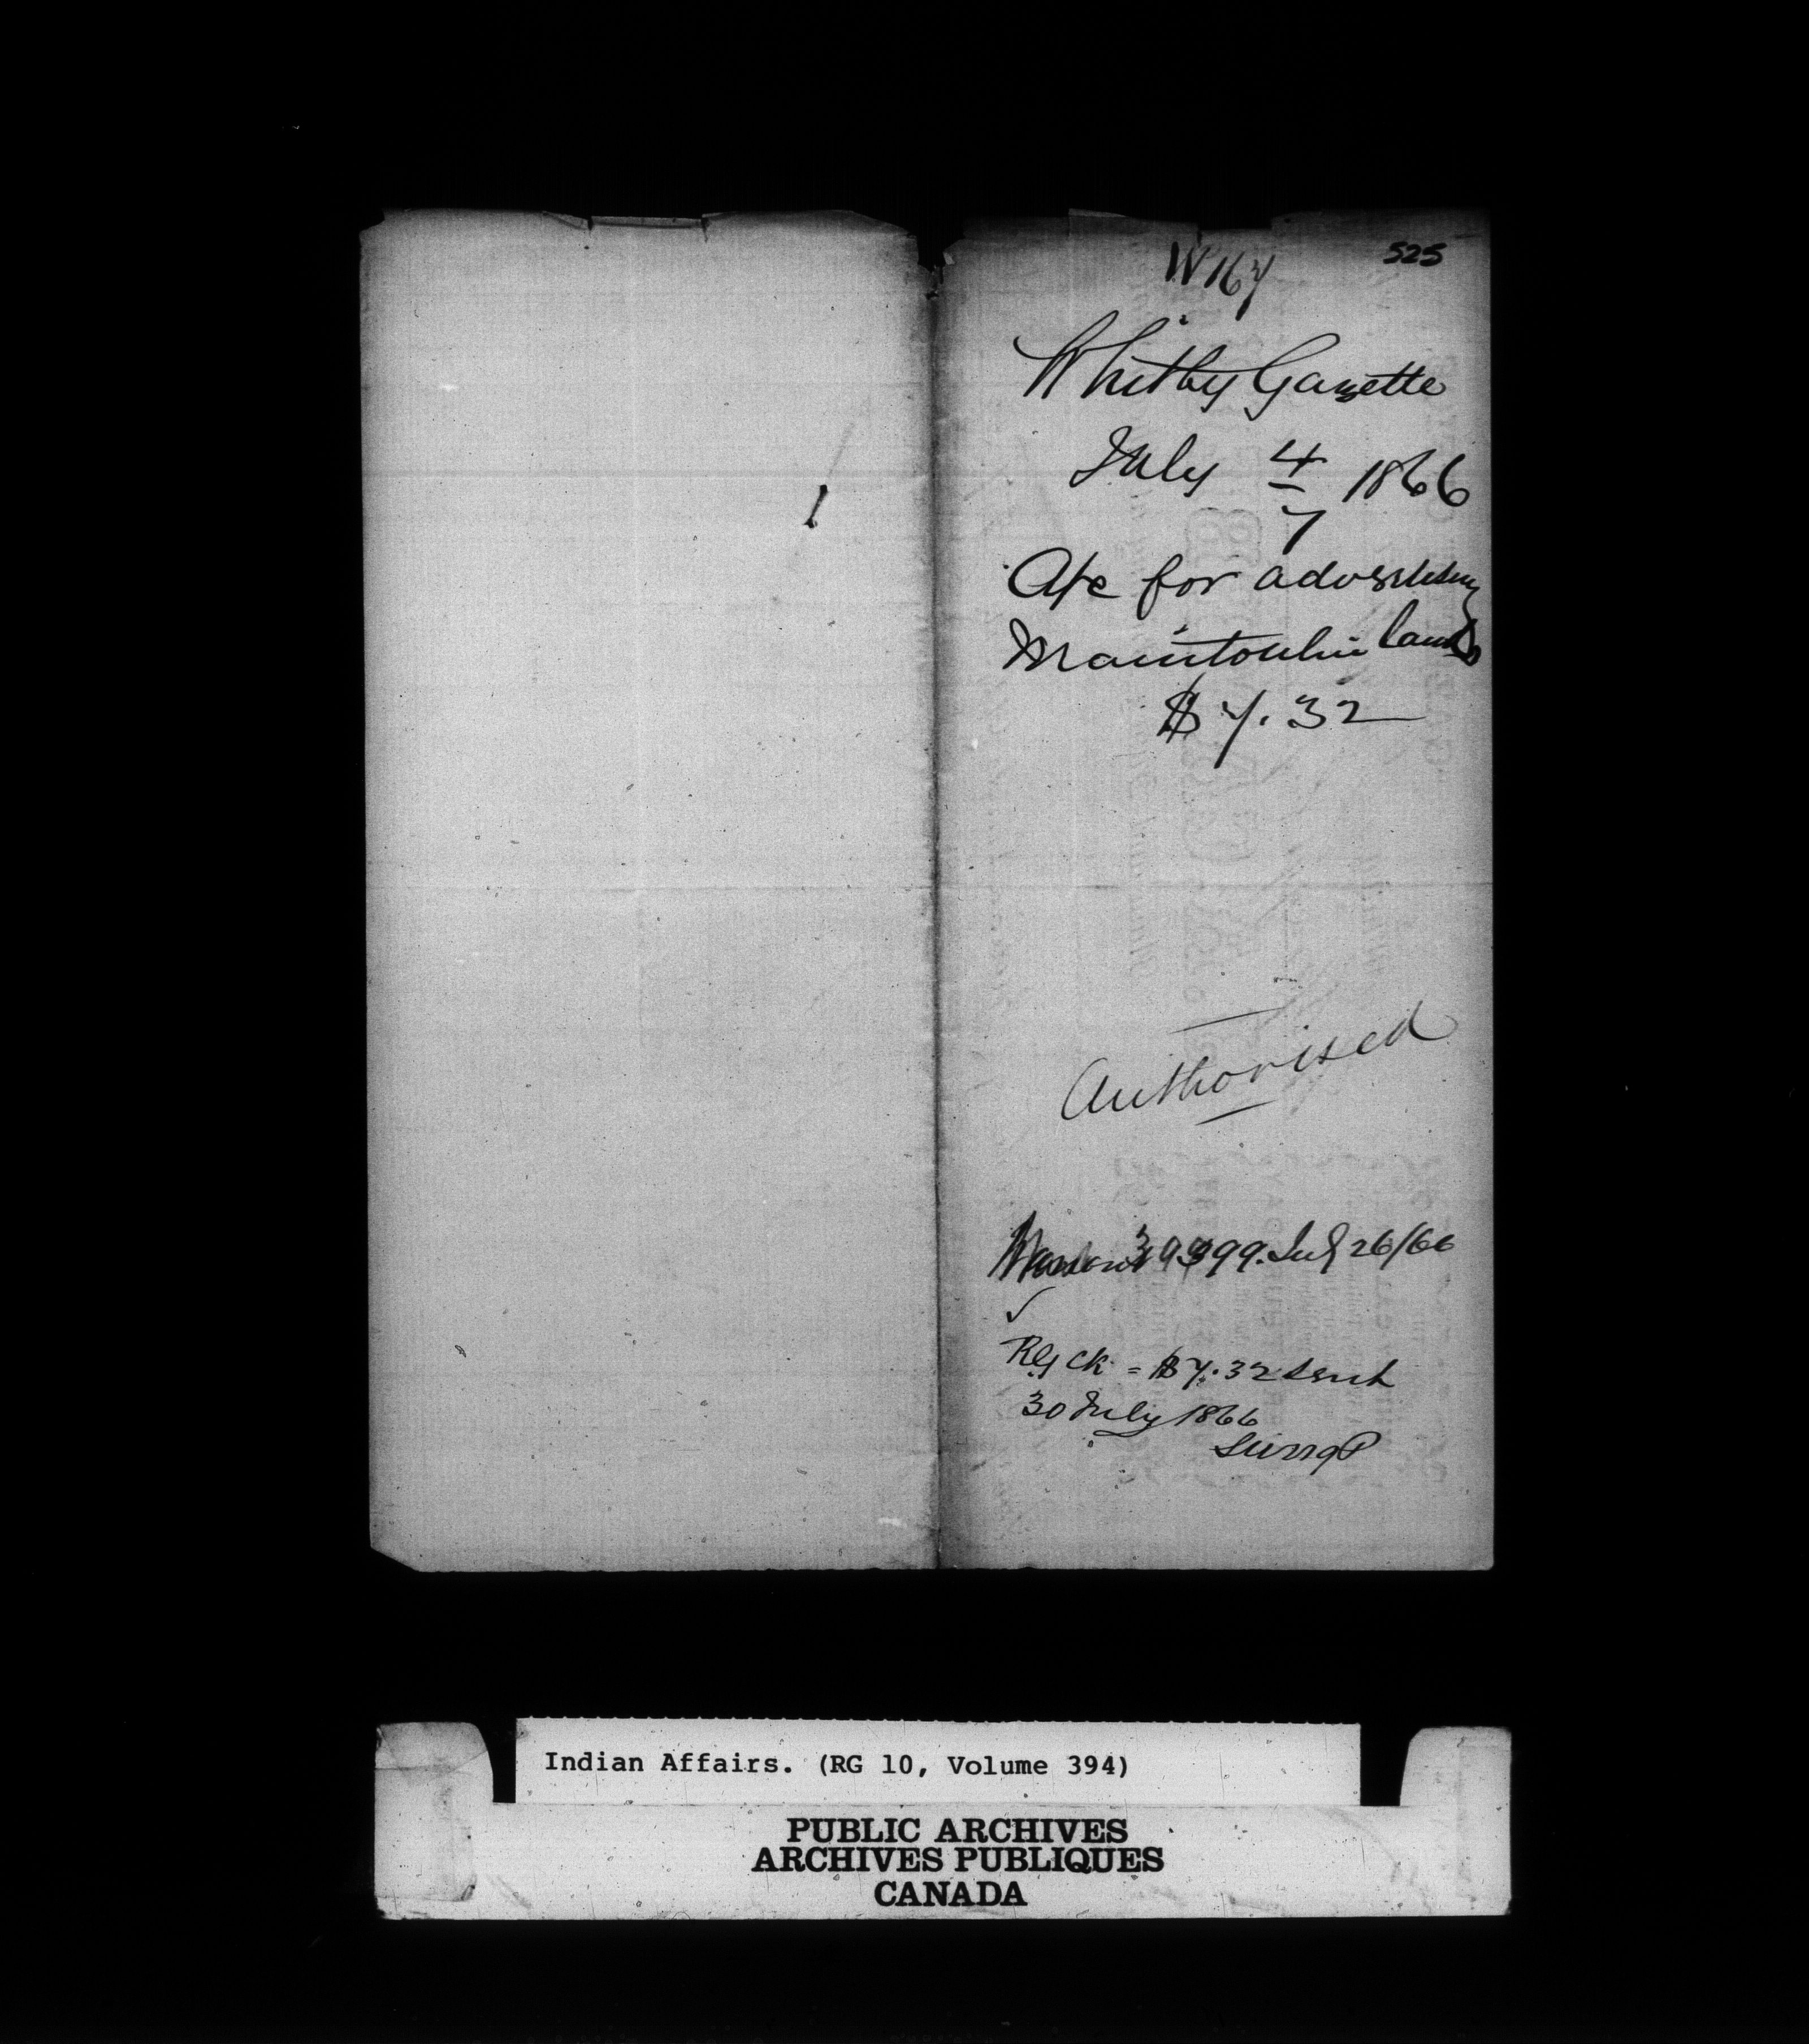 525
W 167
Whitby Gazette
July 4/7 1866
A/c for advertising
Manitoulin lands
$7.32
Authorised
Warrant July 26/66
✓
ck = $7.32 sent
30 July 1866
Indian Affairs. (RG 10, Volume 394)
PUBLIC ARCHIVES
ARCHIVES PUBLIQUES
CANADA